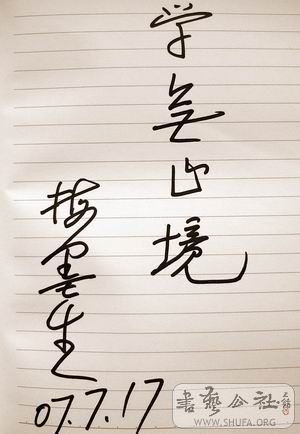 学无止境
梅墨生
07.7.17
書藝公社
WWW.SHUFA.ORG